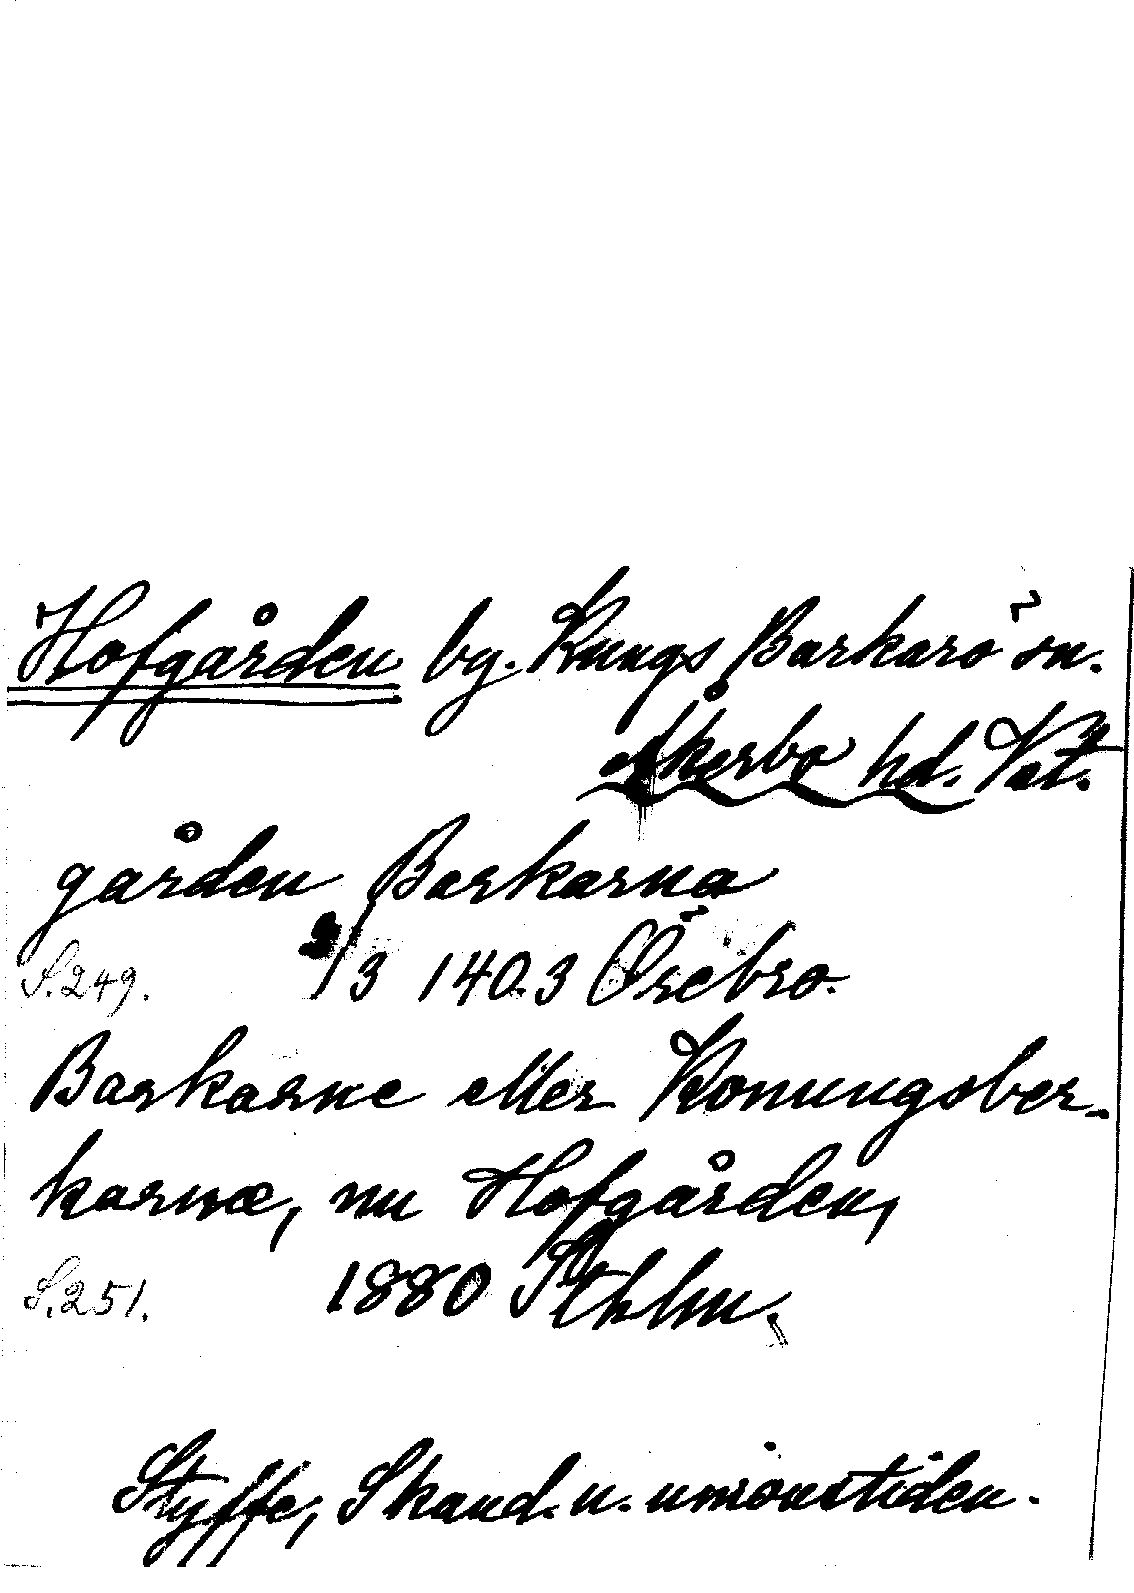 Hofgården by. Kungs Barkarö sn.
Åkerbo hd. Vstm.
gården Barkarna
S. 249. 2/3 1403 Örebro.
Barkarne eller Konungsber-
karnæ, nu Hofgården,
S. 251. 1880 Sthlm.
Styffe, Skand. u. unionstiden.